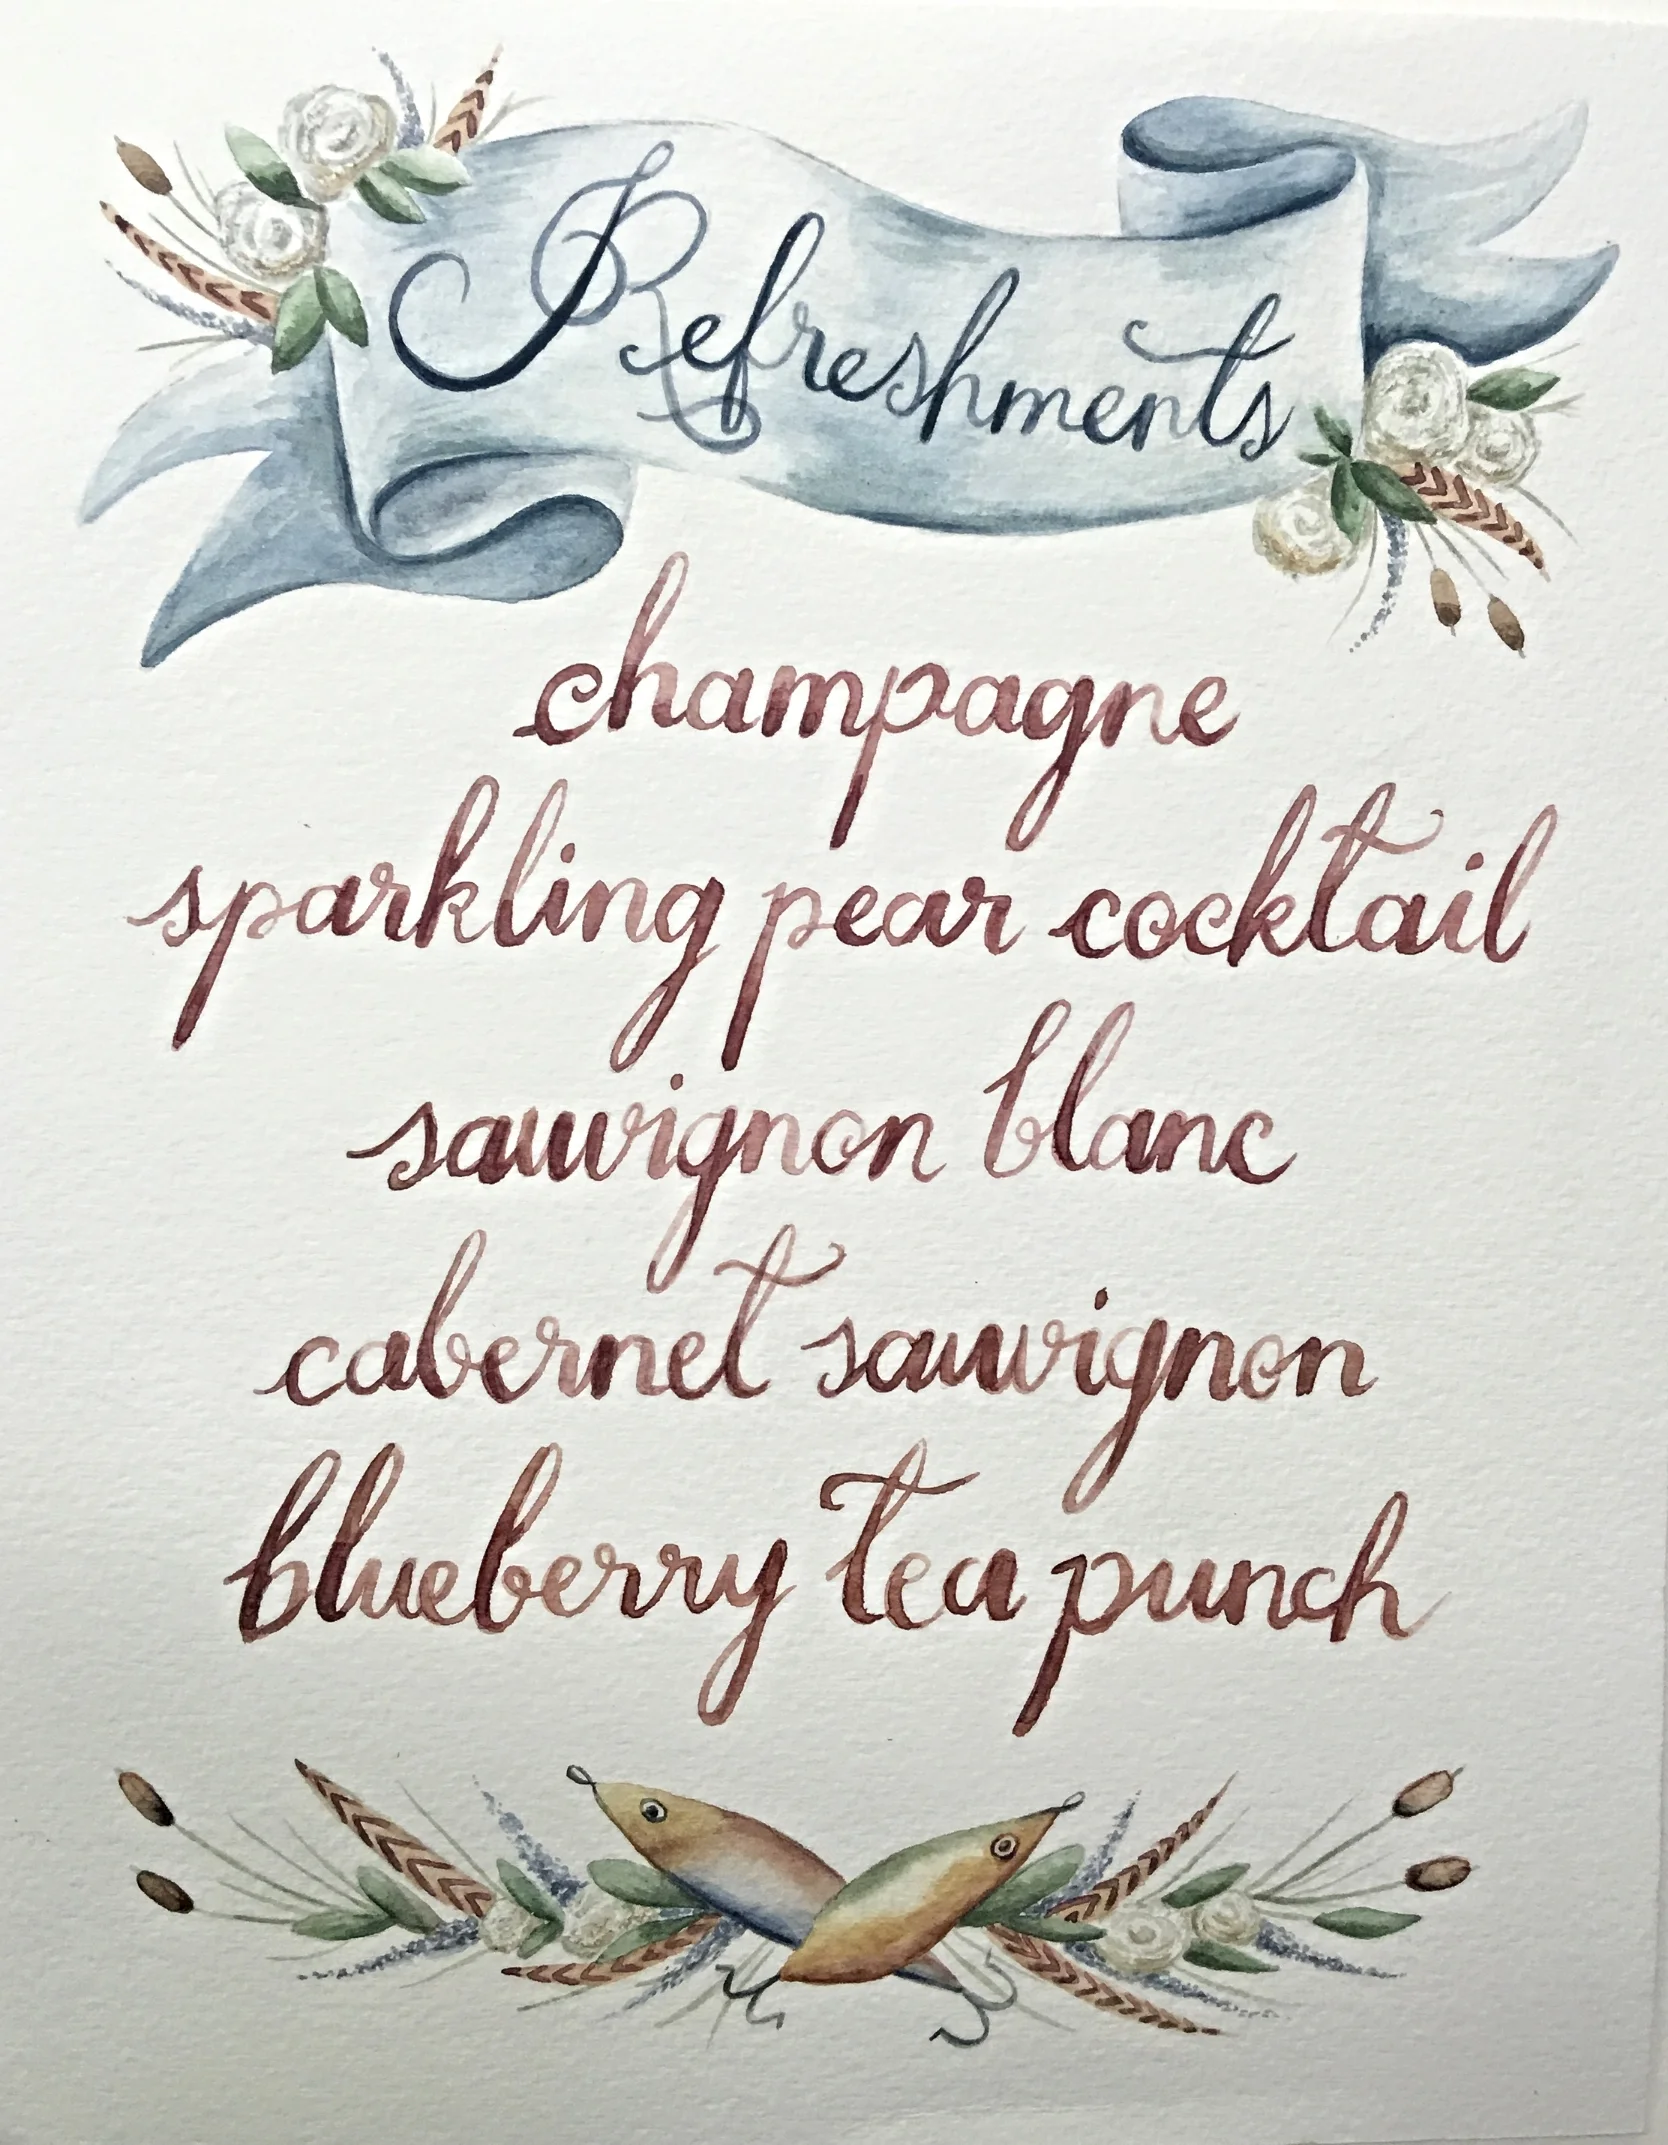 Refreshments
champagne
sparkling pear cocktail
sauvignon blanc
cabernet sauvignon
blueberry tea punch